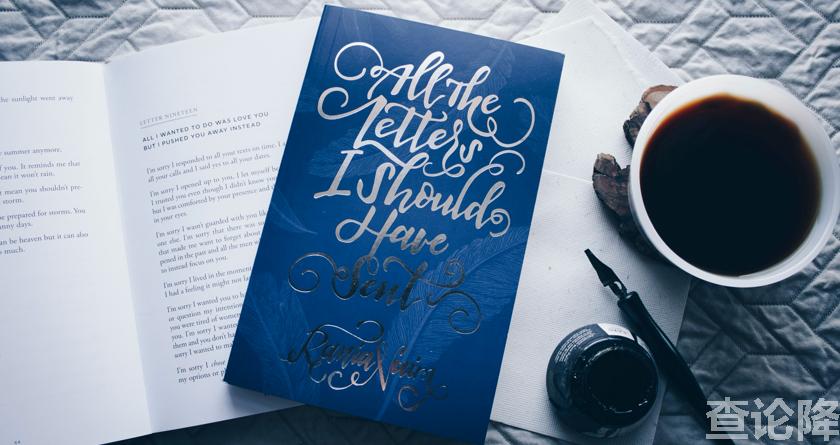 the sunlight went away
summer anymore.
f you. It reminds me that
ean it won't rain.
t mean you shouldn't pre-
storm.
e prepared for storms. You
unny days.
an be heaven but it can also
o much.
64
LETTER NINETEEN
ALL I WANTED TO DO WAS LOVE YOU
BUT I PUSHED YOU AWAY INSTEAD
I'm sorry I responded to all your texts on time. I
all your calls and I said yes to all your dates.
I'm sorry I opened up to you. I let myself be
I trusted you even though I didn't know you
but I was comforted by your presence and th
in your eyes.
I'm sorry I wasn't guarded with you lik
one else. I'm sorry that there was so
that made me want to forget about
pened in the past and all the men w
to instead focus on you.
I'm sorry I lived in the moment
I had a feeling it might not las
I'm sorry I wanted you to
or question my intention
you were tired of women
them and you don't ha
sorry I wanted to ma
I'm sorry I chos
my options or p
All the
Letters
I Should
Have
Sent
Rania Naim
查论隆